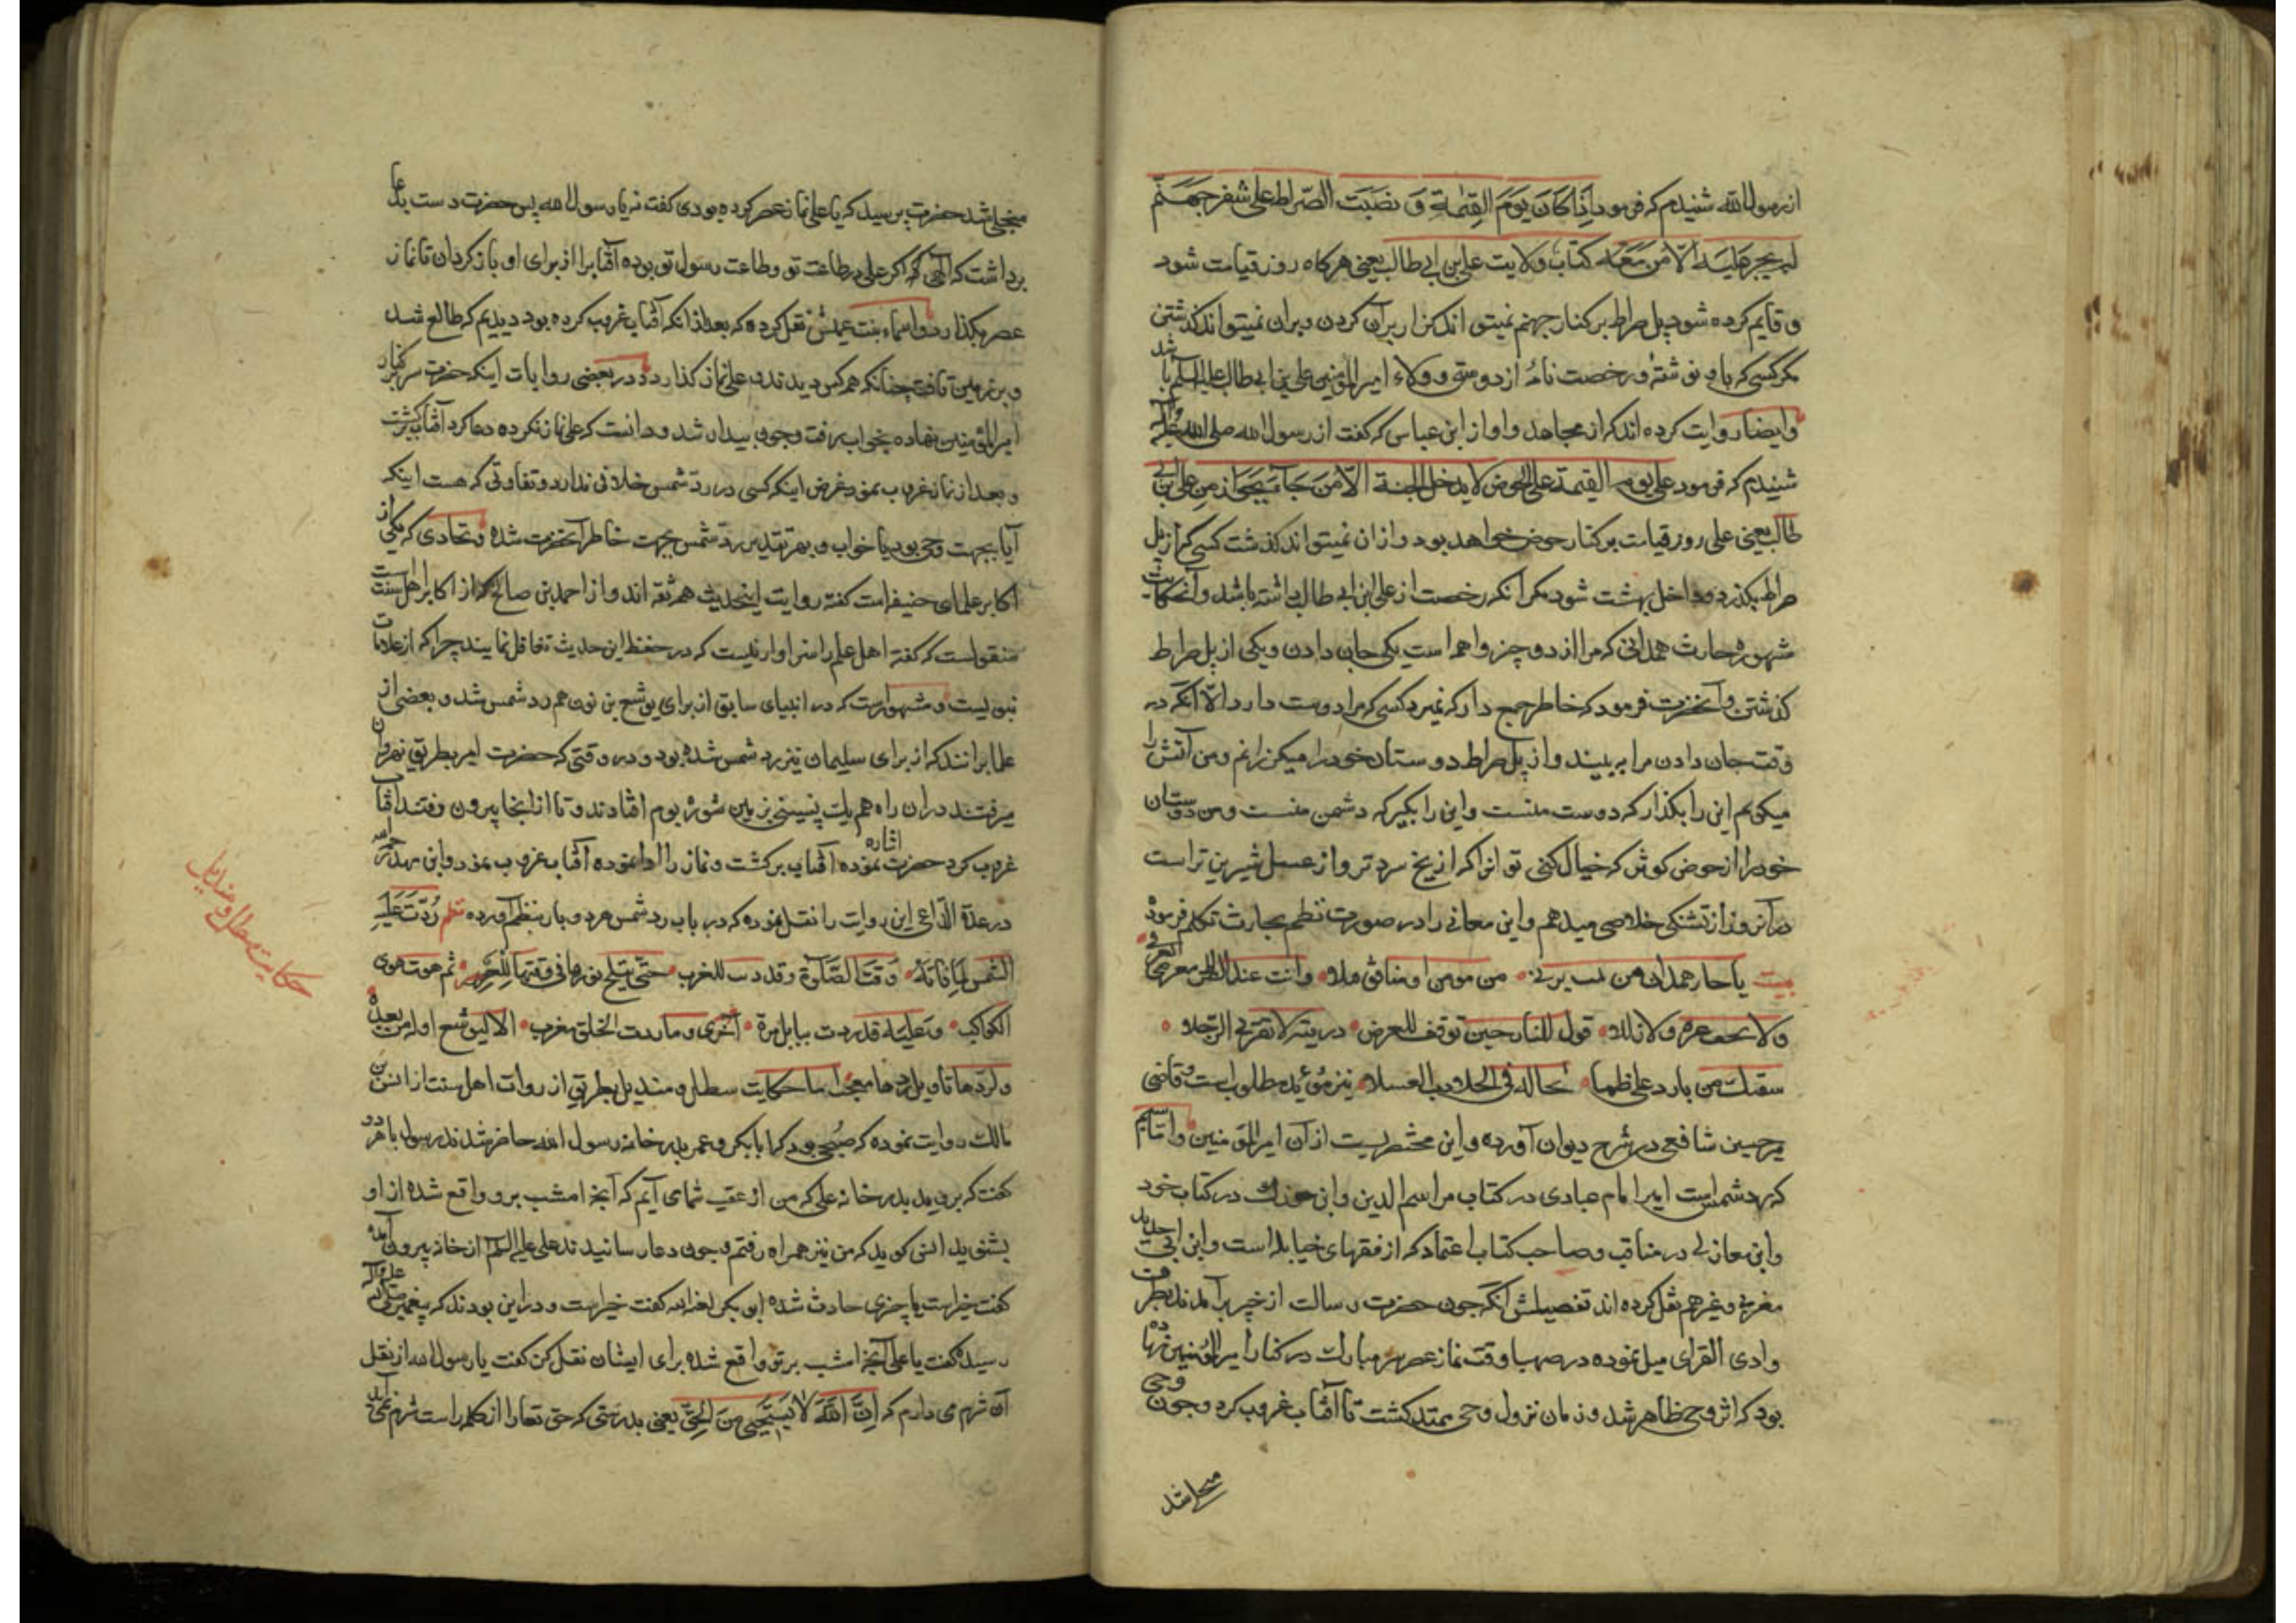 از رسول الله شنیدم که فرمود اذا کان یوم القیمة و نصبت الصراط علی شفر جهنم
لم یجز علیه الا من معه کتاب ولایت علی بن ابی طالب یعنی هرکاه روز قیامت شود
و قایم کرده شود پل صراط بر کنار جهنم نمیتواند کذار بر آن کردن و بران نمیتواند کذشتن
مکر کسی که با او نوشته و رخصت نامهٔ از دوستی و ولاء امیر المؤمنین علی بن ابی طالب علیه السلم باشد
و ایضا روایت کرده اند که از مجاهد و او از ابن عباس که کفت از رسول الله صلی الله علیه و آله
شنیدم که فرمود علی یوم القیمة علی الحوض لا یدخل الجنة الا من جا بجواز من علی بن ابی
طالب یعنی علی روز قیامت بر کنار حوض خواهد بود و ازان نمیتواند کذشت کسی که از پل
صراط بکذرد و داخل بهشت شود مکر آنکه رخصت از علی ابن ابی طالب داشته باشد و آن حکایت
مشهوره حارث همدانی که مرا از دو چیز واهمه است یکی جان دادن و یکی از پل صراط
کذشتن و آنحضرت فرمود که خاطر جمع دار که نمیرد کسی که مرا دوست دارد الا آنکه در
وقت جان دادن مرا به بیند و از پل صراط دوستان خود را میکذرانم و من آتش را
میکویم این را بکذار که دوست منست و این را بکیر که دشمن منست و من دوستان
خود را از حوض کوثر که خیال کنی تو انرا که از یخ سرد تر و از عسل شیرین تر است
در آنروز از تشنکی خلاصی میدهم و این معانی را در صورت نظم بحارث تکلم فرموده
بیت یا حار همدان من یمت یرنی من مومن او منافق قبلا و انت عند الصراط معرضی
ولا تخف عثرة ولا زللا قول للنار حین توقف للعرض ذریه لا تقربی الرجلا
سقیک من بارد علی ظما تخاله فی الحلاوة العسلا نیز مؤید مطلوب است و قاضی
میر حسین شافعی در شرح دیوان آورده و این مختصریست از آن امیر المؤمنین و اما سیم
که رد شمس است امیرا امام عبادی در کتاب مراسم الدین و ابن در کتاب خود
و ابن مغازلی در مناقب و صاحب کتاب اعتماد که از فقهای است و ابن ابی الحدید
مغربی و غیرهم نقل کرده اند تفصیلش آنکه جون حضرت رسالت از خیبر آمدند بطرف
وادی القرای میل نموده در صهبا وقت نماز عصر سر مبارک در کنار امیر المؤمنین نهاده
بود که اثر وحی ظاهر شد و زمان نزول وحی ممتد کشت تا آفتاب غروب کرد و جون وحی
منجلی شد
منجلی شد حضرت پرسید که یا علی نماز عصر کرده بودی کفت نه یا رسول الله پس حضرت دست بدعا
برداشت که الهی کر علی در طاعت تو و طاعت رسول تو بوده آفتابرا از برای او باز کردان تا نماز
عصر بکذارد و اسماء بنت عمیس نقل کرده که بعد از انکه آفتاب غروب کرده بود دیدیم که طالع شد
و بر زمین تافت چنانکه همه کس دیدند و علی نماز کذارد و در بعضی روایات اینکه حضرت سر بر کنار
امیر المؤمنین نهاده بخواب رفت و جون بیدار شد و دانست که علی نماز نکرده دعا کرد آفتاب برکشت
و بعد از نماز غروب نمود غرض اینکه کسی در رد شمس خلافی ندارد و تفاوتی که هست اینکه
آیا بجهت وحی بود یا خواب و بهر تقدیر رد شمس بجهت خاطر آنحضرت شده و طحاوی که یکی از
اکابر علمای حنیفه است کفته روایت اینحدیث همه ثقه اند و از احمد بن صالح که از اکابر اهل سنت است
منقولست که کفته اهل علم را سزاوار نیست که در حفظ این حدیث تغافل نمایند چرا که از علامات
نبوتست و مشهور است که در انبیای سابق از برای یوشع بن نون هم رد شمس شد و بعضی از
علما برانند که از برای سلیمان نیز رد شمس شده بود و در وقتی که حضرت امیر بطریق نهروان
میرفتند در ان راه هم بزمین شوره بوم افتادند و تا از انجا بیرون رفتند آفتاب
غروب کرد حضرت اشاره نموده آفتاب برکشت و نماز را ادا نموده آفتاب غروب نمود و ابن فهد رحمه الله
در عدة الداعی این روایت را نقل نموده که در باب رد شمس هر دو بار بنظم آورده نظم ردت علیه
الشمس لما فاته وقت الصلوة و قد دنت للمغرب حتی تبلج نورها فی وقتها للعصر ثم هوت هوی
الکواکب و علیه قد ردت ببابل مرة اخری و ما ردت لخلق مغرب الا لیوشع او له من بعده
و لردها تاویل معجب اما حکایت سطل و مندیل بطریق از روات اهل سنت از انس بن
مالک روایت نموده که صبحی بود که ابا بکر و عمر بدر خانه رسول الله حاضر شدند رسول با هر دو
کفت که بروید بدر خانه علی که من از عقب شما می آیم که آنچه امشب برو واقع شده از او
بشنوید انس کوید که من نیز همراه رفتم و جون دعا رسانیدند علی علیه السلم از خانه بیرون آمده
کفت خیر است یا چیزی حادث شده ابو بکر لعنه الله کفت خیر است و در این بودند که پیغمبر صلی الله علیه و آله
رسید کفت یا علی آنچه امشب بر تو واقع شده برای ایشان نقل کن کفت یا رسول الله از نقل
آن شرم می دارم که ان الله لا یستحیی من الحق یعنی بدرستی که حق تعالی از کلمه راست شرم نمی آید
حکایت سطل و مندیل